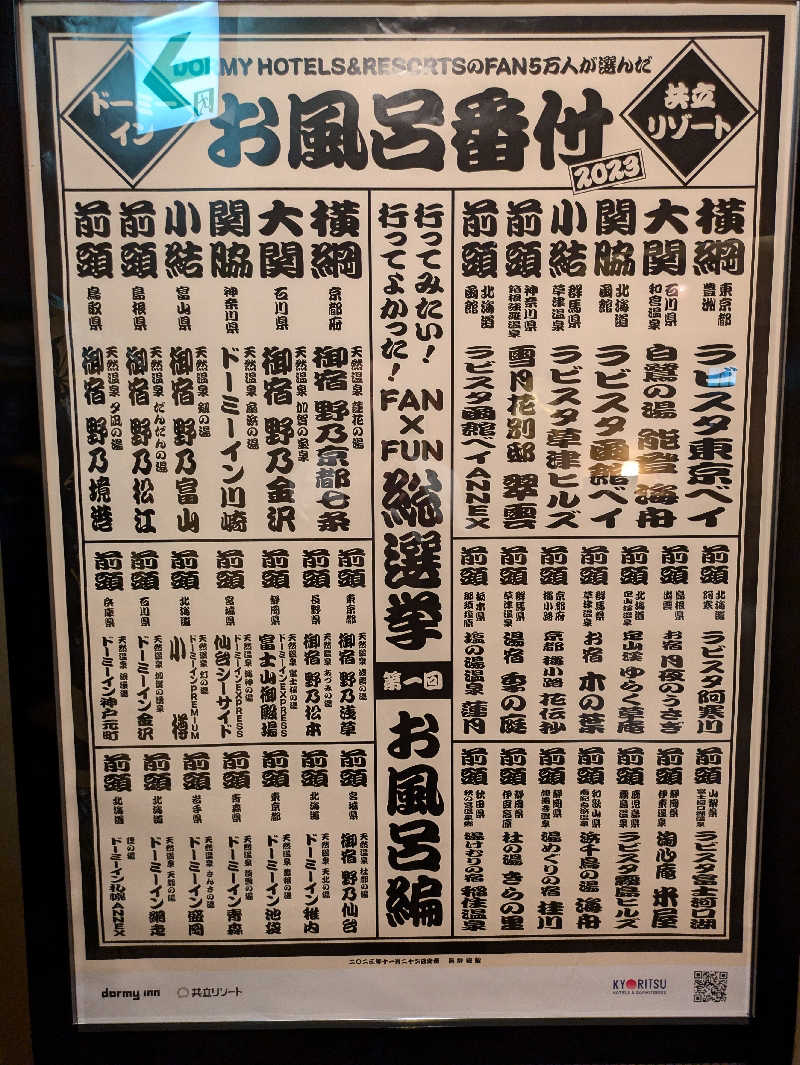 DORMY HOTELS&RESORTSのFAN5万人が選んだ
ドーミーイン
お風呂番付
2023
共立リゾート
横綱 東京都 豊洲 ラビスタ東京ベイ
大関 石川県 和倉温泉 白鷺の湯 能登 海舟
関脇 北海道 函館 ラビスタ函館ベイ
小結 群馬県 草津温泉 ラビスタ草津ヒルズ
前頭 神奈川県 箱根強羅温泉 雪月花別邸 翠雲
前頭 北海道 函館 ラビスタ函館ベイANNEX
前頭 北海道 阿寒 ラビスタ阿寒川
前頭 島根県 出雲 お宿 月夜のうさぎ
前頭 北海道 定山渓温泉 定山渓 ゆらく草庵
前頭 群馬県 草津温泉 お宿 木の葉
前頭 京都府 梅小路 京都 梅小路 花伝抄
前頭 群馬県 草津温泉 湯宿 季の庭
前頭 栃木県 那須塩原 塩の湯温泉 蓮月
前頭 山梨県 富士河口湖温泉 ラビスタ富士河口湖
前頭 静岡県 伊東温泉 淘心庵 米屋
前頭 鹿児島県 霧島温泉 ラビスタ霧島ヒルズ
前頭 和歌山県 南紀白浜温泉 浜千鳥の湯 海舟
前頭 静岡県 修善寺温泉 湯めぐりの宿 桂川
前頭 静岡県 伊豆高原 杜の湯 きらの里
前頭 秋田県 秋の宮温泉郷 湯けむりの宿 稲住温泉
行ってみたい!
行ってよかった!
FAN×FUN総選挙
第一回
お風呂編
横綱 京都府 天然温泉 蓮花の湯 御宿 野乃京都七条
大関 石川県 天然温泉 加賀の宝泉 御宿 野乃金沢
関脇 神奈川県 天然温泉 扇浜の湯 ドーミーイン川崎
小結 富山県 天然温泉 剱の湯 御宿 野乃富山
前頭 島根県 天然温泉 だんだんの湯 御宿 野乃松江
前頭 鳥取県 天然温泉 夕凪の湯 御宿 野乃境港
前頭 東京都 天然温泉 凌雲の湯 御宿 野乃浅草
前頭 長野県 天然温泉 あづみの湯 御宿 野乃松本
前頭 静岡県 天然温泉 富士桜の湯 ドーミーインEXPRESS 富士山御殿場
前頭 宮城県 天然温泉 海神の湯 ドーミーインEXPRESS 仙台シーサイド
前頭 北海道 天然温泉 灯の湯 ドーミーインPREMIUM 小樽
前頭 石川県 天然温泉 加賀の湧泉 ドーミーイン金沢
前頭 兵庫県 天然温泉 浪漫湯 ドーミーイン神戸元町
前頭 宮城県 天然温泉 杜都の湯 御宿 野乃仙台
前頭 北海道 天然温泉 天北の湯 ドーミーイン稚内
前頭 東京都 天然温泉 豊穣の湯 ドーミーイン池袋
前頭 青森県 天然温泉 ドーミーイン青森
前頭 岩手県 天然温泉 さんさの湯 ドーミーイン盛岡
前頭 北海道 天然温泉 天都の湯 ドーミーイン網走
前頭 北海道 狸の湯 ドーミーイン札幌ANNEX
dormy inn
共立リゾート
KYORITSU
HOTELS & DORMITORIES